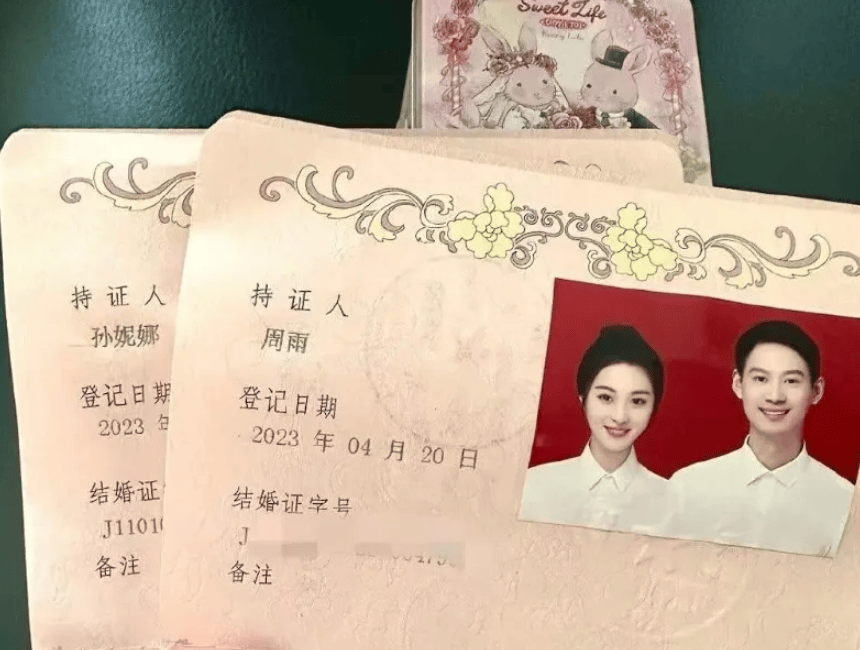 Sweet Life
持证人
孙妮娜
登记日期
2023 年
结婚证
J11010
备注
持证人
周雨
登记日期
2023 年 04 月 20 日
结婚证字号
J
备注